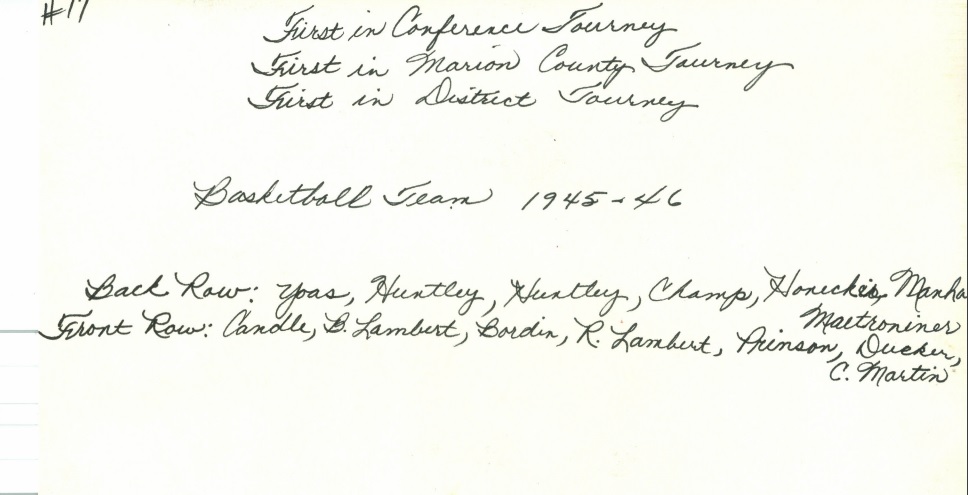 #17
First in Conference Tourney
First in Marion County Tourney
First in District Tourney
Basketball Team 1945-46
Back Row: Yoas, Huntley, Huntley, Champ, Honeckis, Manha
Maetroniner
Front Row: Candle, B. Lambert, Bordin, R. Lambert, Prinson, Ducker,
C. Martin